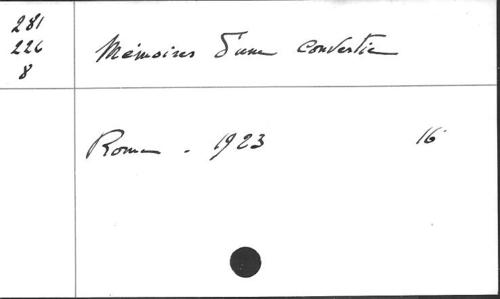 281
226
8
Mémoires d'une convertie
Rome - 1923 16°